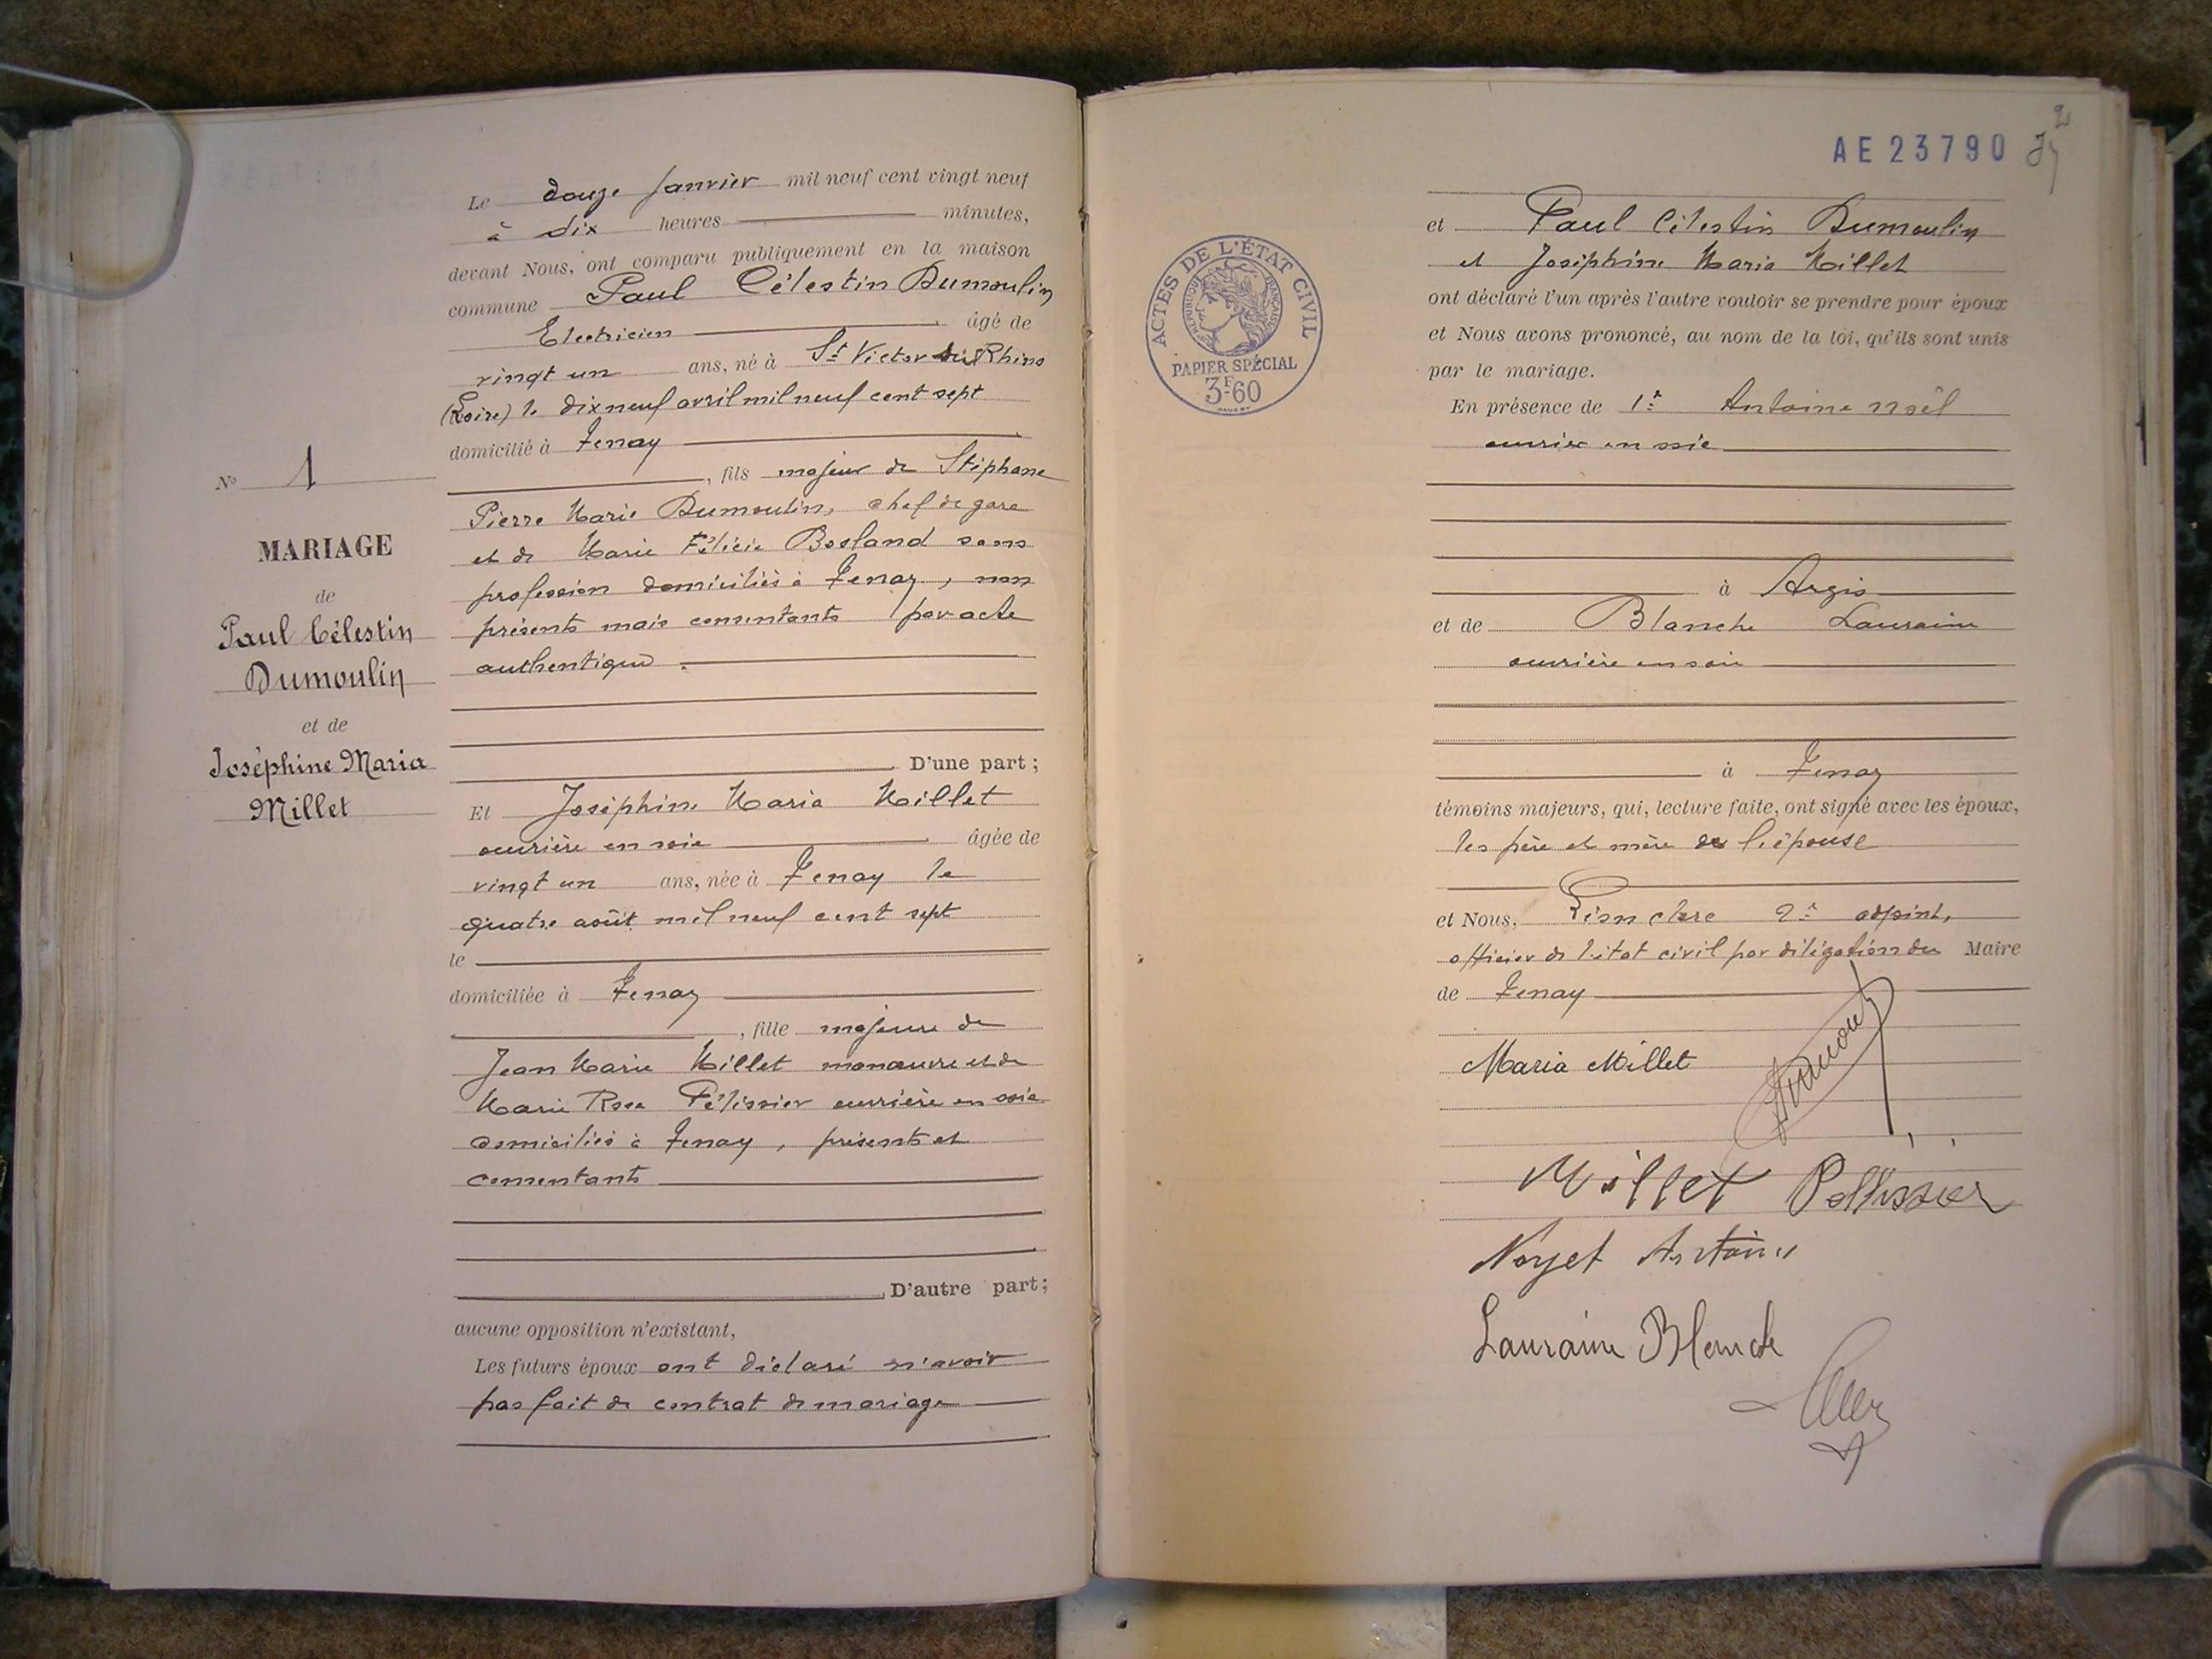 Le douze Janvier mil neuf cent vingt neuf
à dix heures minutes,
devant Nous, ont comparu publiquement en la maison
commune Paul Célestin Dumoulin
Electricien âgé de
vingt un ans, né à St Victor sur Rhins
(Loire) le dix neuf avril mil neuf cent sept
domicilié à Tenay
, fils majeur de Stéphane
Pierre Marie Dumoulin, chef de gare
et de Marie Félicie Bosland sans
profession domiciliés à Tenay, non
présents mais consentants par acte
authentique.
D'une part;
Et Joséphine Maria Millet
ouvrière en soie âgée de
vingt un ans, née à Tenay le
quatre août mil neuf cent sept
le
domiciliée à Tenay
, fille majeure de
Jean Marie Millet manœuvre et de
Marie Rose Pélissier ouvrière en soie
domiciliés à Tenay, présents et
consentants
D'autre part;
aucune opposition n'existant,
Les futurs époux ont déclaré n'avoir
pas fait de contrat de mariage
No 1
MARIAGE
de
Paul Célestin
Dumoulin
et de
Joséphine Maria
Millet
AE 23790
2
ACTES DE L'ÉTAT CIVIL
RÉPUBLIQUE FRANÇAISE
PAPIER SPÉCIAL
3F60
et Paul Célestin Dumoulin
et Joséphine Maria Millet
ont déclaré l'un après l'autre vouloir se prendre pour époux
et Nous avons prononcé, au nom de la loi, qu'ils sont unis
par le mariage.
En présence de 1° Antoine noël
ouvrier en soie
à Argis
et de Blanche Lauraine
ouvrière en soie
à Tenay
témoins majeurs, qui, lecture faite, ont signé avec les époux,
les père et mère de l'épouse
et Nous, 2e adjoint,
officier de l'état civil par délégation du Maire
de Tenay
Maria Millet
Millet Pellissier
Noyet Antoine
Lauraine Blanche